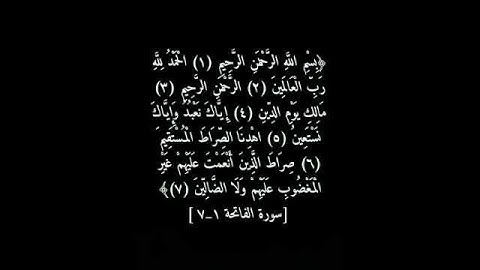 ﴿بِسْمِ اللَّهِ الرَّحْمَنِ الرَّحِيمِ (١) الْحَمْدُ لِلَّهِ
رَبِّ الْعَالَمِينَ (٢) الرَّحْمَنِ الرَّحِيمِ (٣)
مَالِكِ يَوْمِ الدِّينِ (٤) إِيَّاكَ نَعْبُدُ وَإِيَّاكَ
نَسْتَعِينُ (٥) اهْدِنَا الصِّرَاطَ الْمُسْتَقِيمَ
(٦) صِرَاطَ الَّذِينَ أَنْعَمْتَ عَلَيْهِمْ غَيْرِ
الْمَغْضُوبِ عَلَيْهِمْ وَلَا الضَّالِّينَ (٧)﴾
[سورة الفاتحة ١-٧ ]